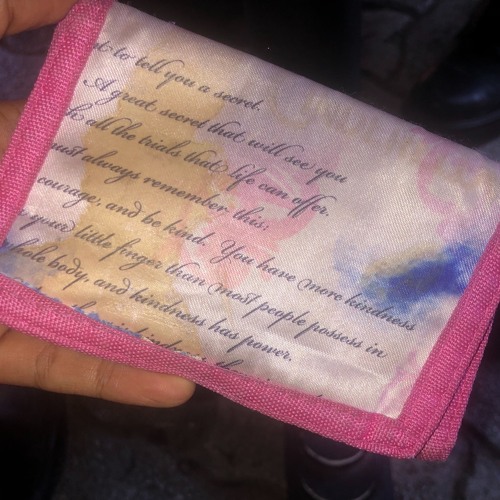 to tell you a secret.
A great secret that will see you
all the trials that life can offer.
must always remember this:
courage, and be kind. You have more kindness
your little finger than most people possess in
whole body, and kindness has power.